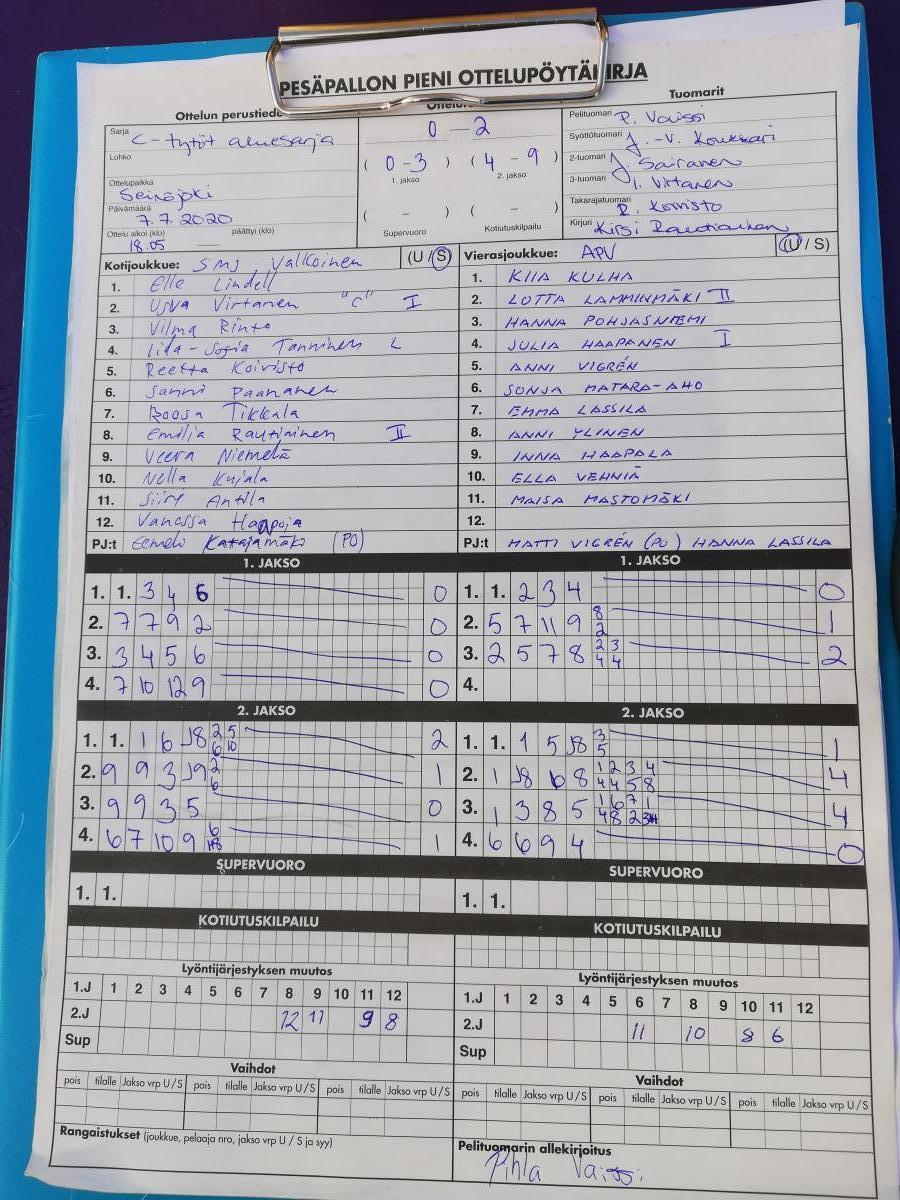 PESÄPALLON PIENI OTTELUPÖYTÄKIRJA
Ottelun perustiedot
Sarja C-tytöt aluesarja
Lohko
Ottelupaikka Seinäjoki
Päivämäärä 7.7.2020
Ottelu alkoi (klo) päättyi (klo)
18.05
0 - 2
( 0-3 ) ( 4 - 9 )
1. jakso 2. jakso
( - ) ( - )
Supervuoro Kotiutuskilpailu
Tuomarit
Pelituomari P. Vaissi
Syöttötuomari J.-V. Koukkari
2-tuomari J. Sairanen
3-tuomari I. Virtanen
Takarajatuomari R. Koivisto
Kirjuri Kirsi Rautiainen
Kotijoukkue: SMJ Valkoinen (U/S)
1. Elle Lindell
2. Usva Virtanen "C" I
3. Vilma Rinto
4. Iida-Sofia Tanninen L
5. Reetta Koivisto
6. Sanni Paananen
7. Roosa Tikkala
8. Emilia Rautiainen II
9. Veera Niemelä
10. Nella Kujala
11. Siiry Antila
12. Vanessa Haapoja
PJ:t Eemeli Katajamäki (PO)
Vierasjoukkue: APV (U/S)
1. KIIA KULHA
2. LOTTA LAMMINMÄKI II
3. HANNA POHJASNIEMI
4. JULIA HAAPANEN I
5. ANNI VIGRÉN
6. SONJA MATARA-AHO
7. EMMA LASSILA
8. ANNI YLINEN
9. INNA HAAPALA
10. ELLA VEHNIÄ
11. MAISA MASTOMÄKI
12.
PJ:t MATTI VIGRÉN (PO) HANNA LASSILA
1. JAKSO
1. 1. 3 4 6 0
2. 7 7 9 2 0
3. 3 4 5 6 0
4. 7 10 12 9 0
1. JAKSO
1. 1. 2 3 4 0
2. 5 7 11 9 8 1
2
3. 2 5 7 8 2 3 2
4 4
4.
2. JAKSO
1. 1. 1 6 J8 2 5 2
6 10
2. 9 9 3 J9 2 1
6
3. 9 9 3 5 0
4. 6 7 10 9 6 1
2. JAKSO
1. 1. 1 5 J8 3 1
5
2. 1 J8 10 8 1 2 3 4 4
4 4 5 8
3. 1 3 8 5 1 6 7 1 4
4 8 2
4. 6 6 9 4 0
SUPERVUORO
1. 1.
SUPERVUORO
1. 1.
KOTIUTUSKILPAILU
KOTIUTUSKILPAILU
Lyöntijärjestyksen muutos
1.J 1 2 3 4 5 6 7 8 9 10 11 12
2.J 12 11 9 8
Sup
Lyöntijärjestyksen muutos
1.J 1 2 3 4 5 6 7 8 9 10 11 12
2.J 11 10 8 6
Sup
Vaihdot
pois tilalle Jakso vrp U/S pois tilalle Jakso vrp U/S pois tilalle Jakso vrp U/S
Vaihdot
pois tilalle Jakso vrp U/S pois tilalle Jakso vrp U/S pois tilalle Jakso vrp U/S
Rangaistukset (joukkue, pelaaja nro, jakso vrp U / S ja syy)
Pelituomarin allekirjoitus
Pihla Vaissi